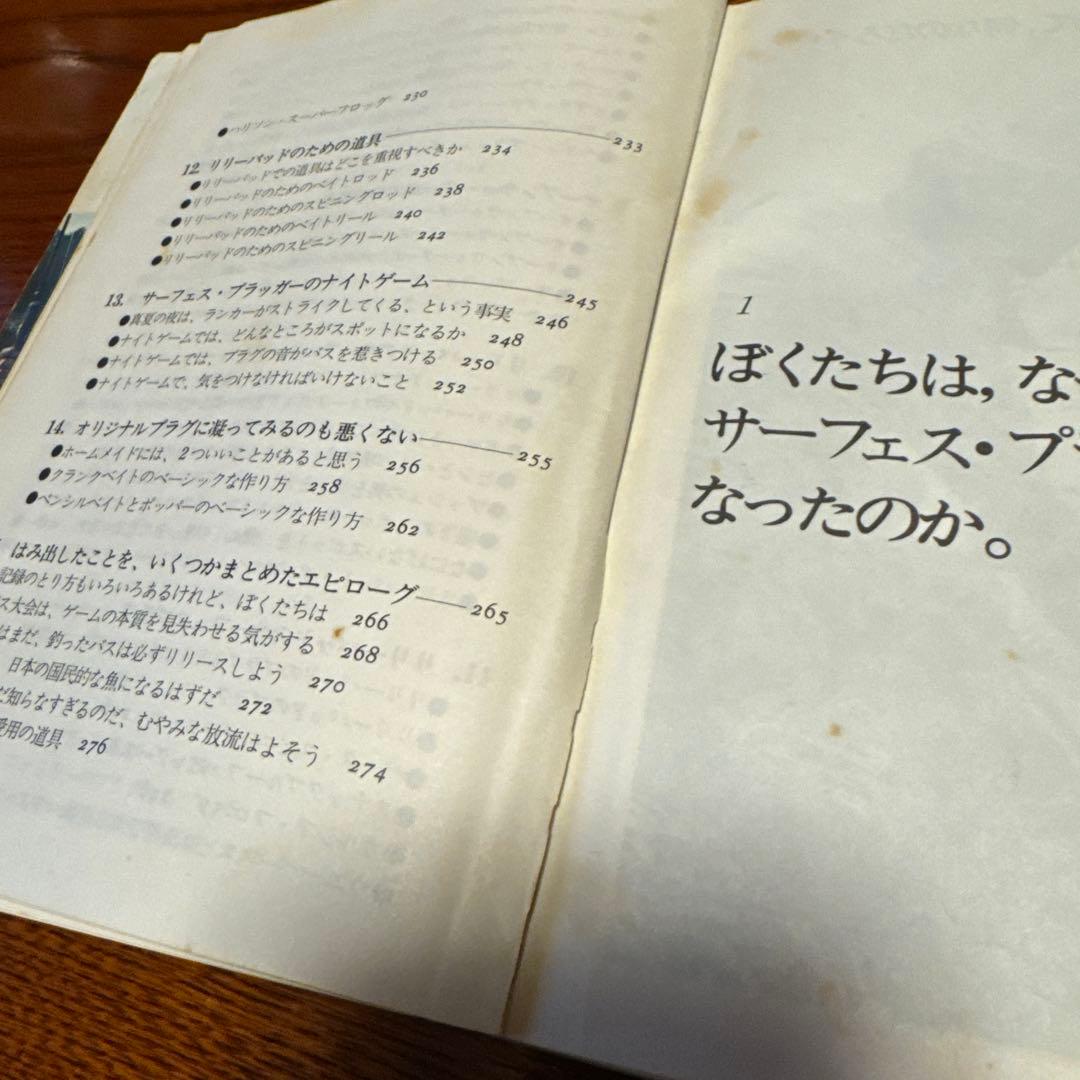 ●ハリソン・スーパーフロッグ 230
12. リリーパッドのための道具 233
●リリーパッドでの道具はどこを重視すべきか 234
●リリーパッドのためのベイトロッド 236
●リリーパッドのためのスピニングロッド 238
●リリーパッドのためのベイトリール 240
●リリーパッドのためのスピニングリール 242
13. サーフェス・プラッガーのナイトゲーム 245
●真夏の夜は、ランカーがストライクしてくる、という事実 246
●ナイトゲームでは、どんなところがスポットになるか 248
●ナイトゲームでは、プラグの音がバスを惹きつける 250
●ナイトゲームで、気をつけなければいけないこと 252
14. オリジナルプラグに凝ってみるのも悪くない 255
●ホームメイドには、2ついいことがあると思う 256
●クランクベイトのベーシックな作り方 258
●ペンシルベイトとポッパーのベーシックな作り方 262
はみ出したことを、いくつかまとめたエピローグ 265
記録のとり方もいろいろあるけれど、ぼくたちは 266
ス大会は、ゲームの本質を見失わせる気がする 268
はまだ、釣ったバスは必ずリリースしよう 270
日本の国民的な魚になるはずだ 272
だ知らなすぎるのだ、むやみな放流はよそう 274
愛用の道具 276
1
ぼくたちは，な
サーフェス・プ
なったのか。